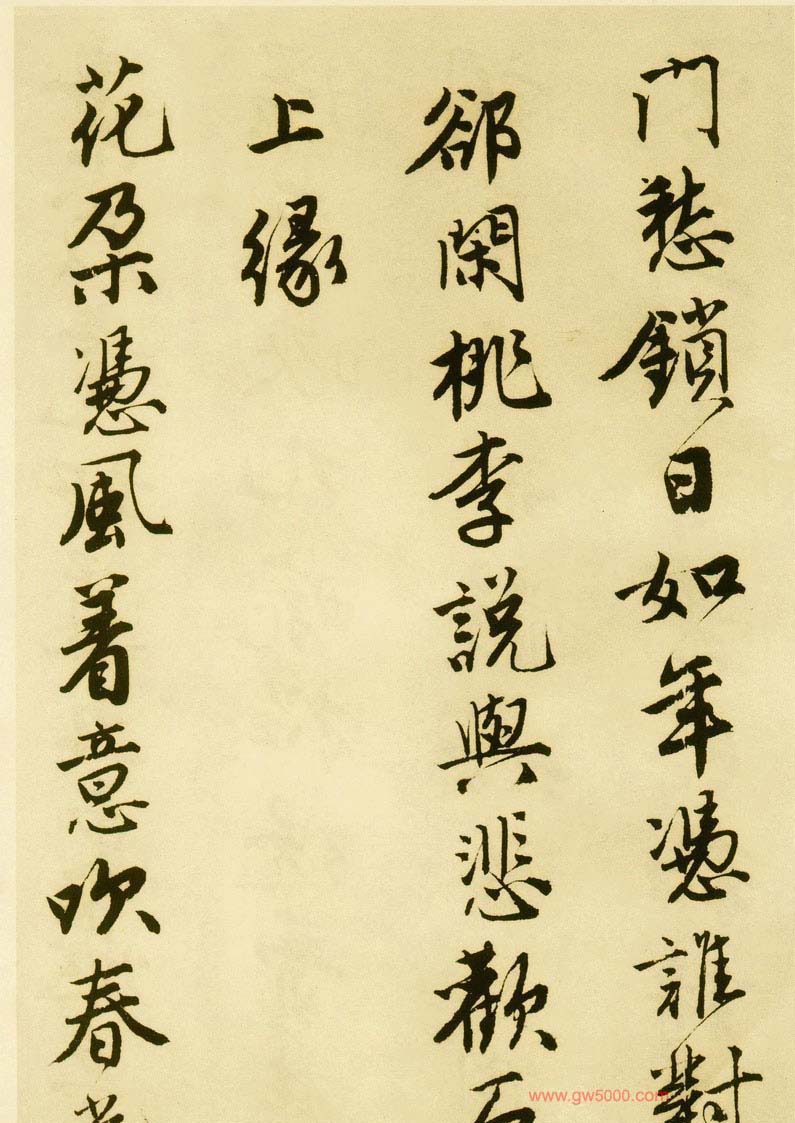 門愁鎖日如年憑誰對
郤閑桃李說與悲歡石
上緣
花朵憑風着意吹春
www.gw5000.com